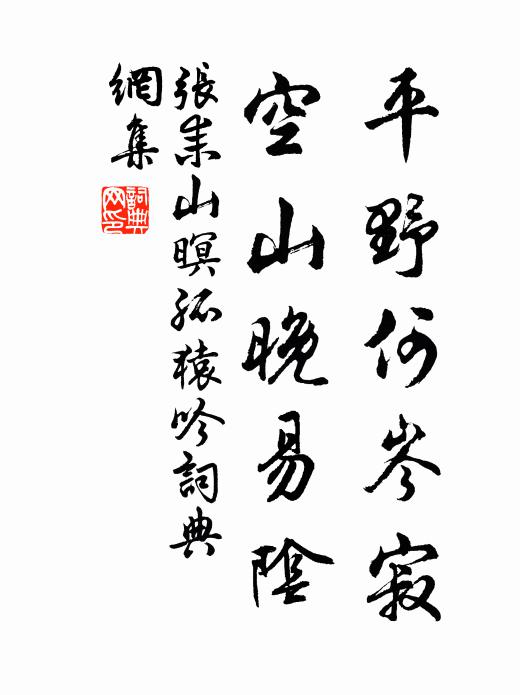 平野何岑寂
空山晚易陰
張耒山暝孤猿吟詞典
網集
詞典網印